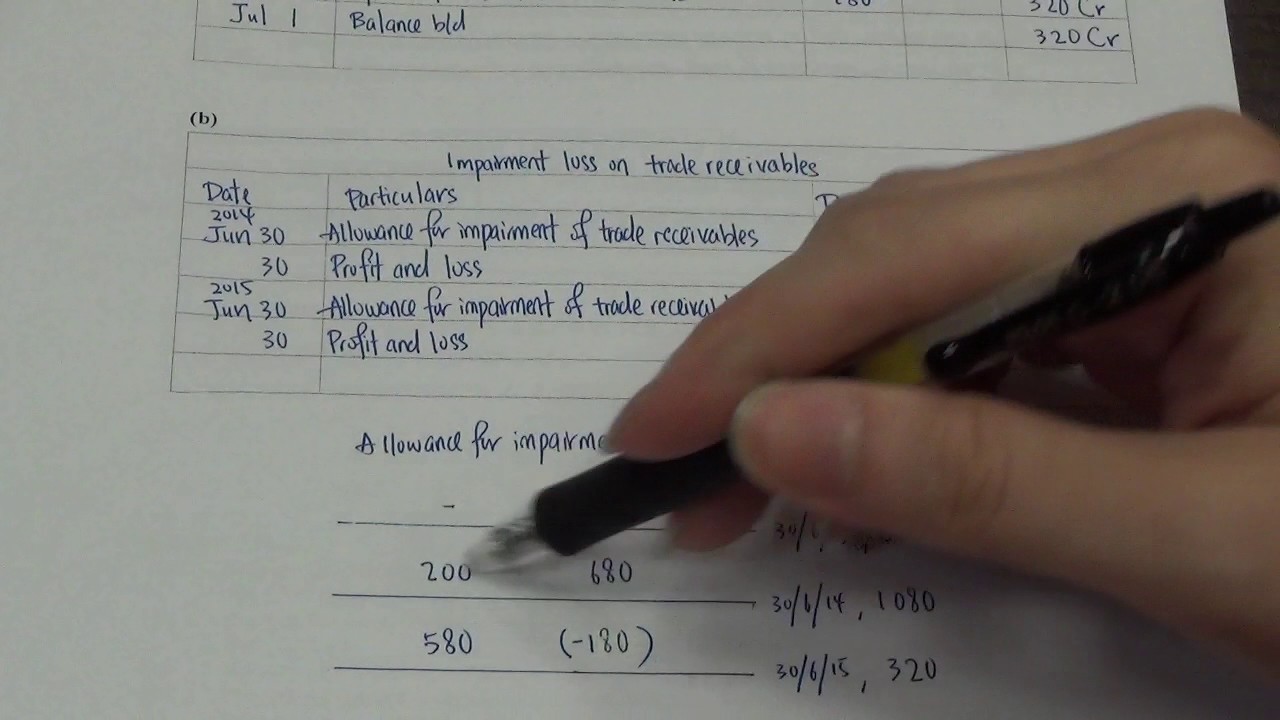 320 Cr
Jul 1 Balance b/d
320 Cr
(b)
Impairment loss on trade receivables
Date Particulars
2014
Jun 30 Allowance for impairment of trade receivables
30 Profit and loss
2015
Jun 30 Allowance for impairment of trade
30 Profit and loss
Allowance for
-
200 680
30/6/14, 1080
580 (-180)
30/6/15, 320